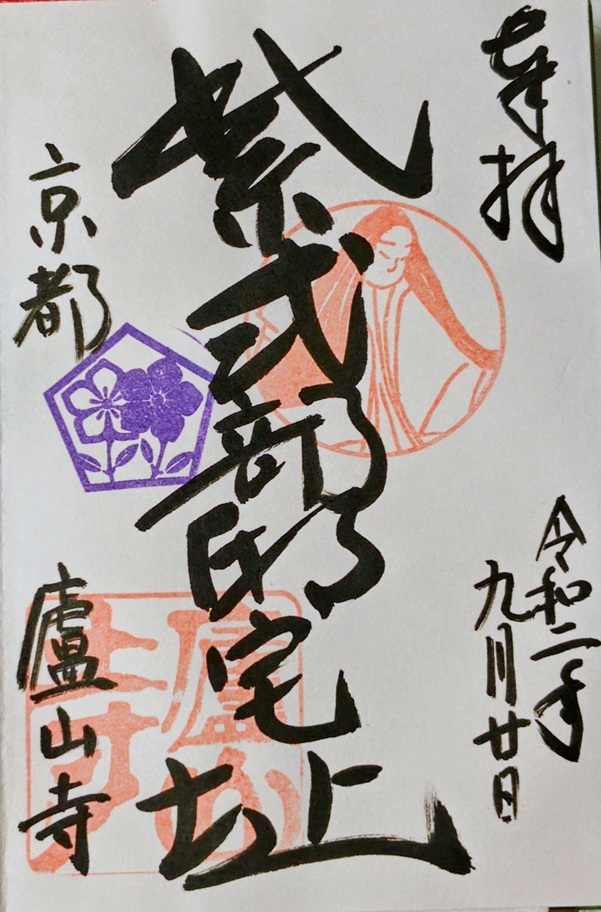 奉拝
令和二年
九月廿日
紫式部邸宅址
京都
盧山寺